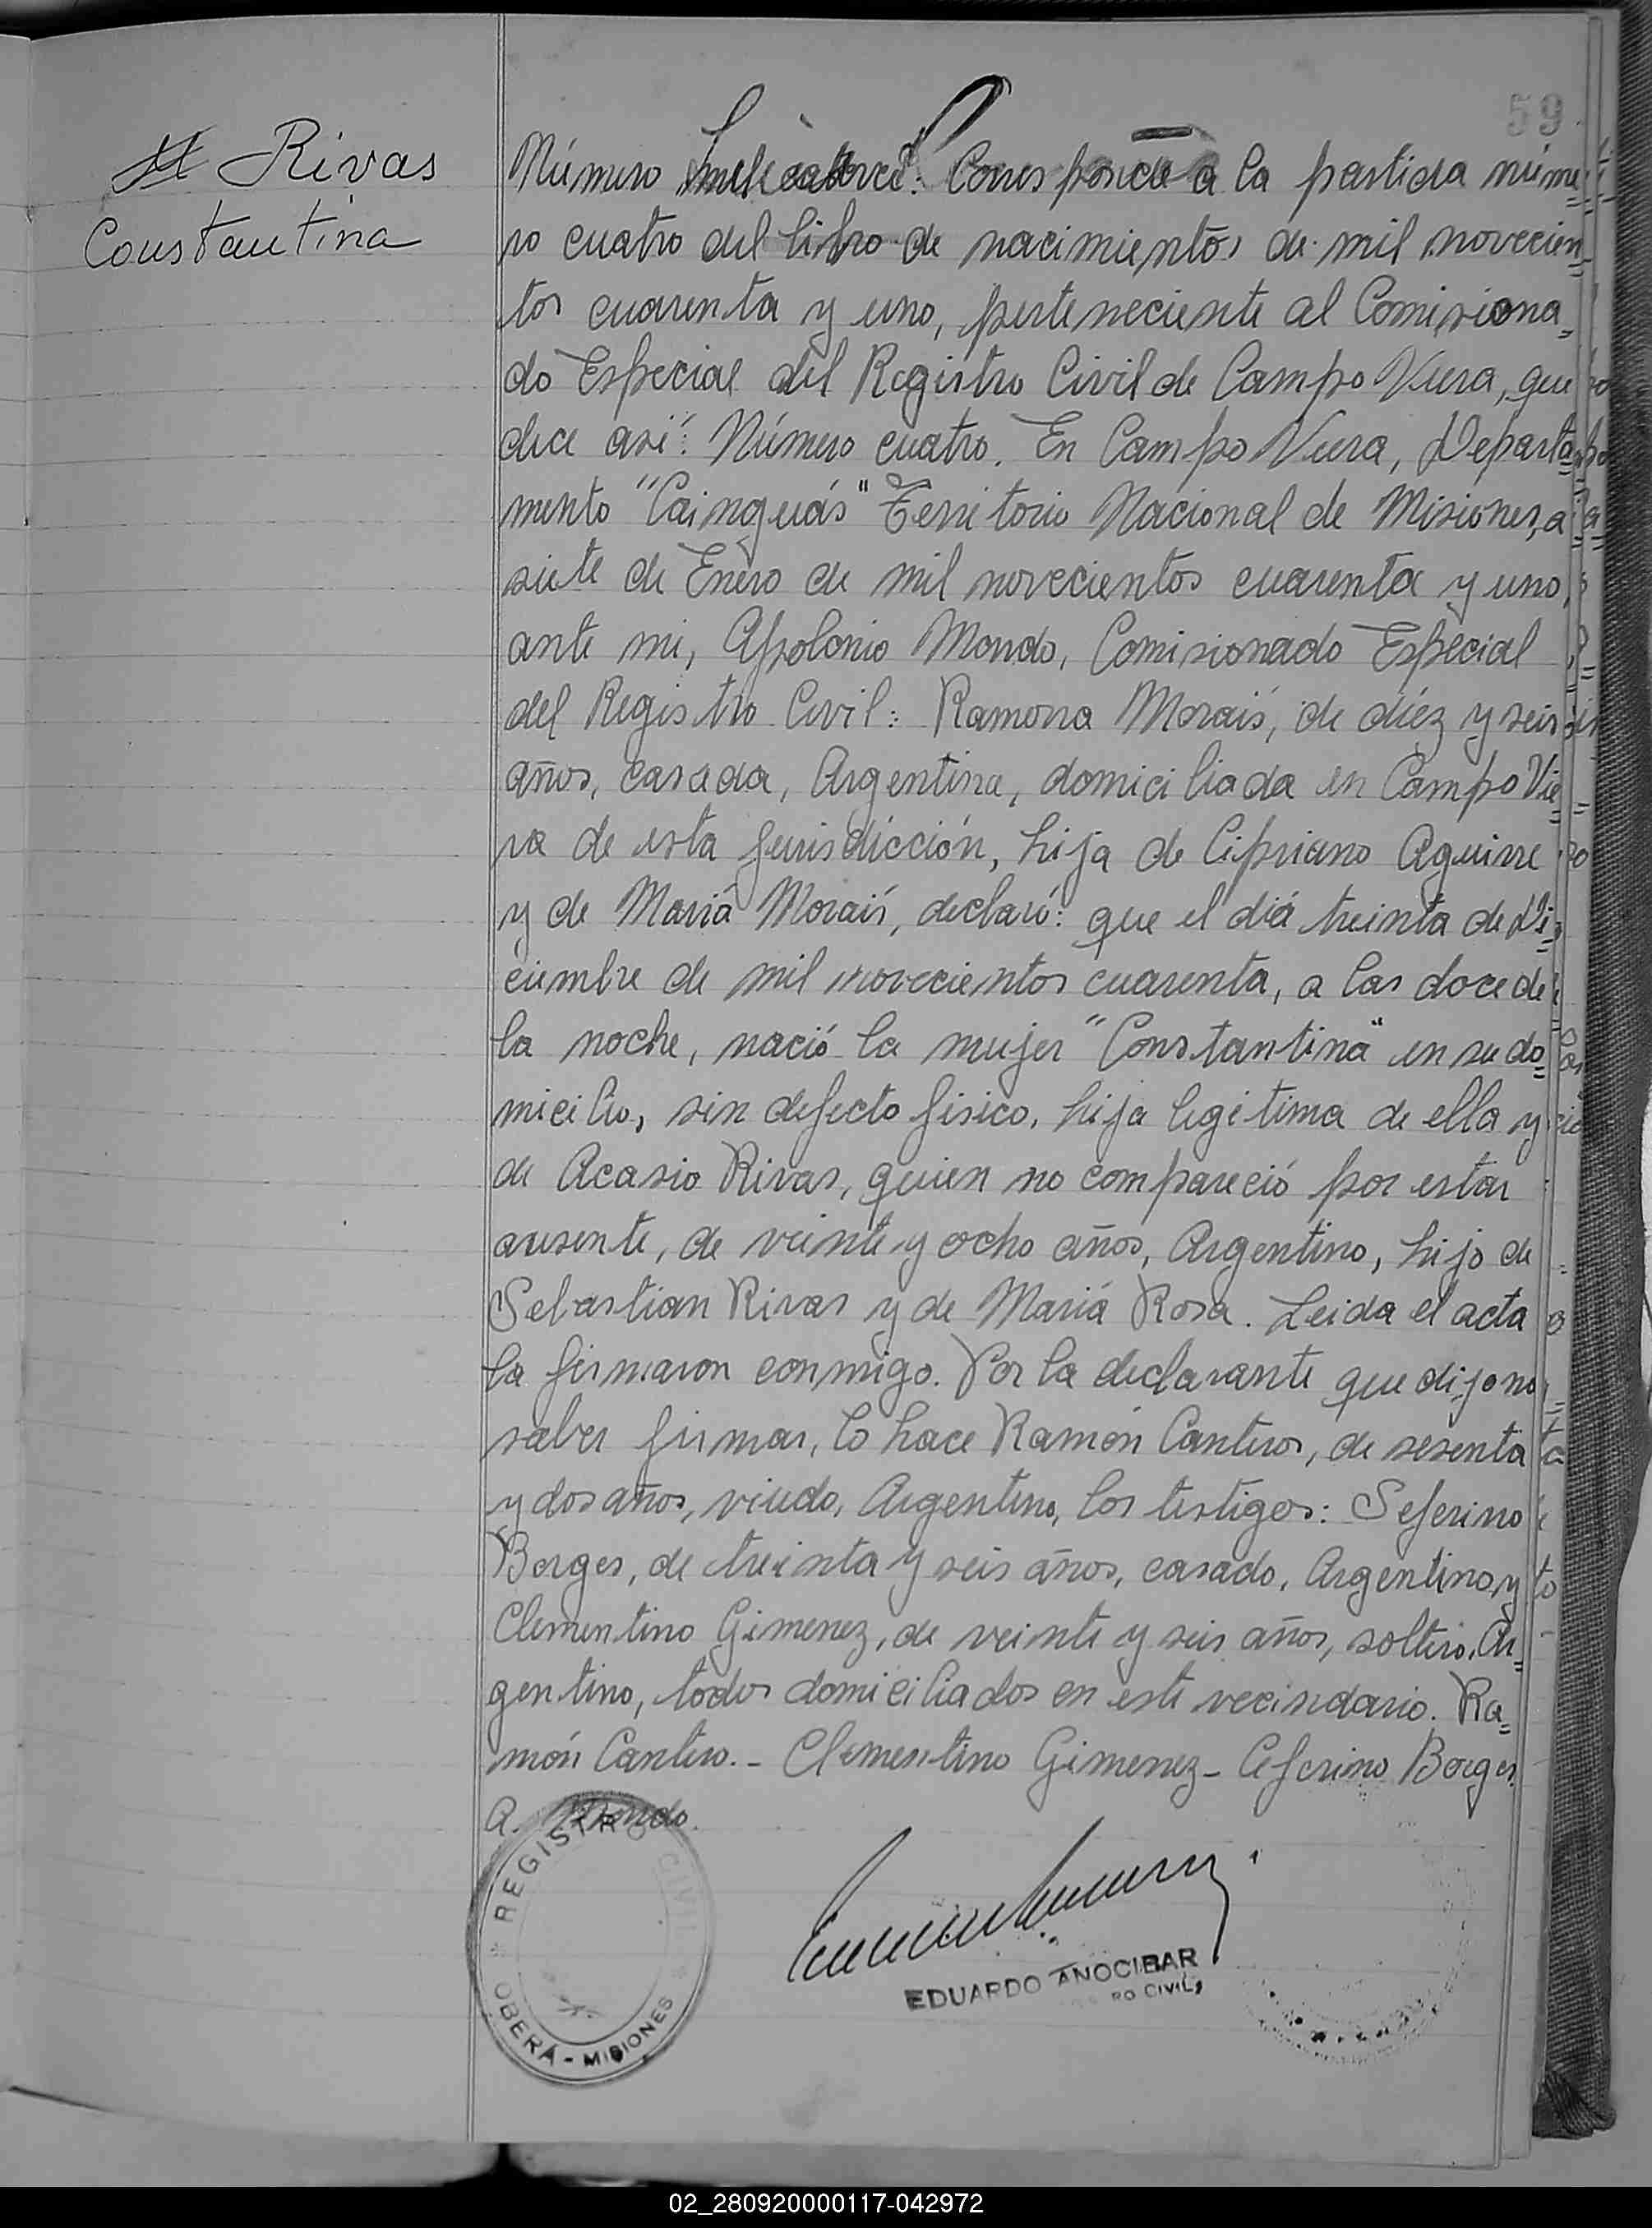 59
Rivas
Constantina
Número catorce: Corresponde a la partida núme
ro cuatro del libro de nacimientos de mil novecien
tos cuarenta y uno, perteneciente al Comisiona
do Especial del Registro Civil de Campo Viera, que
dice así: Número cuatro. En Campo Viera, Departa
mento "Cainguás" Territorio Nacional de Misiones, a
siete de Enero de mil novecientos cuarenta y uno,
ante mi, Apolonio Mondo, Comisionado Especial
del Registro Civil: Ramona Morais, de diéz y seis
años, casada, Argentina, domiciliada en Campo Vie
ra de esta jurisdicción, hija de Cipriano Aguirre
y de Mariá Morais, declaró: que el diá treinta de Di
ciembre de mil novecientos cuarenta, a las doce de
la noche, nació la mujer "Constantina" en su do
micilio, sin defecto fisico, hija legitima de ella y
de Acasio Rivas, quien no compareció por estar
ausente, de veinte y ocho años, Argentino, hijo de
Sebastian Rivas y de Mariá Rosa. Leida el acta
la firmaron conmigo. Por la declarante que dijo no
saber firmar, lo hace Ramón Canteros, de sesenta
y dos años, viudo, Argentino, los testigos: Seferino
Borges, de treinta y seis años, casado, Argentino, y
Clementino Gimenez, de veinte y seis años, soltero, Ar
gentino, todos domiciliados en este vecindario. Ra
món Cantero.- Clementino Gimenez- Ceferino Borges.
A. Mondo.
REGISTRO CIVIL
OBERÁ - MISIONES
EDUARDO ANOCIBAR
RO CIVIL
02_280920000117-042972